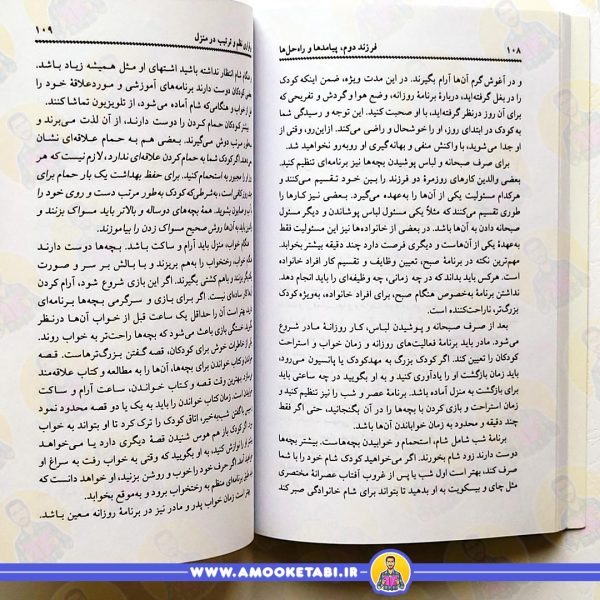 ۱۰۸ فرزند دوم، پیامدها و راه‌حل‌ها
و در آغوش گرم آن‌ها آرام بگیرند. در این مدت ویژه، ضمن اینکه کودک
را در بغل گرفته‌اید، دربارهٔ برنامهٔ روزانه، وضع هوا و گردش و تفریحی که
برای آن روز درنظر گرفته‌اید، با او صحبت کنید. این توجه و رسیدگی شما
به کودک در ابتدای روز، او را خوشحال و راضی می‌کند. ازاین‌رو، وقتی از
او جدا می‌شوید، با واکنش منفی و بهانه‌گیری او روبه‌رو نخواهید شد.
برای صرف صبحانه و لباس پوشیدن بچه‌ها نیز برنامه‌ای تنظیم کنید.
بعضی والدین کارهای روزمرهٔ دو فرزند را بین خود تقسیم می‌کنند و
هرکدام مسئولیت یکی از آن‌ها را به‌عهده می‌گیرد. بعضی نیز کارها را
طوری تقسیم می‌کنند که مثلاً یکی مسئول لباس پوشاندن و دیگر مسئول
صبحانه دادن به آن‌ها باشد. در بعضی از خانواده‌ها نیز این مسئولیت فقط
به‌عهدهٔ یکی از آن‌هاست و دیگری فرصت دارد چند دقیقه بیشتر بخوابد.
مهم‌ترین نکته در برنامهٔ صبح، تعیین وظایف و تقسیم کار افراد خانواده
است. هرکس باید بداند که در چه زمانی، چه وظیفه‌ای را باید انجام دهد.
نداشتن برنامهٔ به‌خصوص هنگام صبح، برای افراد خانواده، به‌ویژه کودک
بزرگ‌تر، ناراحت‌کننده است.
بعد از صرف صبحانه و پوشیدن لباس، کار روزانهٔ مادر شروع
می‌شود. مادر باید برنامهٔ فعالیت‌های روزانه و زمان خواب و استراحت
کودکان را تعیین کند. اگر کودک بزرگ به مهدکودک یا پانسیون می‌رود،
باید زمان بازگشت او را یادآوری کنید و به او بگویید در چه ساعتی باید
برای بازگشت به منزل آماده باشد. برنامهٔ عصر و شب را نیز تنظیم کنید و
زمان استراحت و بازی کردن با بچه‌ها را در آن بگنجانید، حتی اگر فقط
چند دقیقه و محدود به زمان خواباندن آن‌ها باشد.
برنامهٔ شب شامل شام، استحمام و خوابیدن بچه‌هاست. بیشتر بچه‌ها
دوست دارند زود شام بخورند. اگر می‌خواهید کودک شام خود را با شما
صرف کند، بهتر است اول شب یا پس از غروب آفتاب عصرانهٔ مختصری
مثل چای و بیسکویت به او بدهید تا بتواند برای شام خانوادگی صبر کند
نظم و ترتیب در منزل ۱۰۹
شام انتظار نداشته باشید اشتهای او مثل همیشه زیاد باشد.
کودکان دوست دارند برنامه‌های آموزشی و موردعلاقهٔ خود را
از خواب و هنگامی‌که شام آماده می‌شود، از تلویزیون تماشا کنند.
کودکان حمام کردن را دوست دارند، از آن لذت می‌برند و
مرتب دوش می‌گیرند. بعضی هم به حمام علاقه‌ای نشان
اگر کودک شما به حمام کردن علاقه‌ای ندارد، لازم نیست که هر
را مجبور به استحمام کنید. برای حفظ بهداشت یک بار حمام برای
کافی است، به‌شرطی‌که کودک به‌طور مرتب دست و روی خود را
و صابون بشوید. همهٔ بچه‌های دوساله و بالاتر باید مسواک بزنند و
باید به آن‌ها روش صحیح مسواک زدن را بیاموزند.
خواب، منزل باید آرام و ساکت باشد. بچه‌ها دوست دارند
خواب، رختخواب را به‌هم بریزند و با بالش بر سر و صورت
بزنند و باهم کشتی بگیرند. اگر این بازی شروع شود، آرام کردن
کار ساده‌ای نیست. اگر برای بازی و سرگرمی بچه‌ها برنامه‌ای
بهتر است آن را حداقل یک ساعت قبل از خواب آن‌ها درنظر
خستگی بازی باعث می‌شود که بچه‌ها راحت‌تر به خواب روند.
از خاطرات خوش برای کودکان، قصه گفتن بزرگ‌ترهاست. قصه
و کتاب خواندن برای بچه‌ها، آن‌ها را به مطالعه و کتاب علاقه‌مند
بهترین وقت قصه و کتاب خواندن، ساعت آرام و ساکت
است. زمان کتاب خواندن را باید به یک یا دو قصه محدود نمود
با گفتن شب‌به‌خیر، اتاق کودک را ترک کرد تا او بتواند به خواب
اگر کودک باز هم هوس شنیدن قصهٔ دیگری دارد یا می‌خواهد
را گوارش کنید، به او بگویید که وقتی به خواب رفت به سراغ او
اگر حرف خود را خوب و روشن بزنید، او خواهد دانست که
برنامه‌ای منظم به رختخواب برود و به‌موقع بخوابد.
است زمان خواب پدر و مادر نیز در برنامهٔ روزانه معین باشد.
WWW.AMOOKETABI.IR